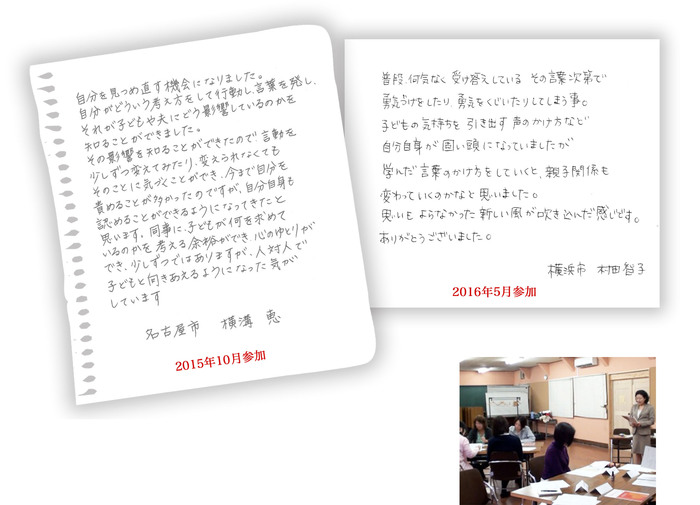 自分を見つめ直す機会になりました。
自分がどういう考え方をして行動し、言葉を発し、
それが子どもや夫にどう影響しているのかを
知ることができました。
その影響を知ることができたので、言動を
少しずつ変えてみたり、変えられなくても
そのことに気づくことができ、今まで自分を
責めることが多かったのですが、自分自身も
認めることができるようになってきたと
思います。同時に、子どもが何を求めて
いるのかを考える余裕ができ、心のゆとりが
でき、少しずつではありますが、人対人で
子どもと向きあえるようになった気が
しています
名古屋市 横溝 恵
2015年10月参加
普段、何気なく受け答えしている その言葉次第で
勇気づけをしたり、勇気をくじいたりしてしまう事。
子どもの気持ちを 引き出す 声のかけ方など
自分自身が 固い頭になっていましたが
学んだ言葉のかけ方をしていくと、親子関係も
変わっていくのかなと思いました。
思いも よらなかった 新しい風が吹き込んだ感じです。
ありがとうございました。
横浜市 村田 智子
2016年5月参加